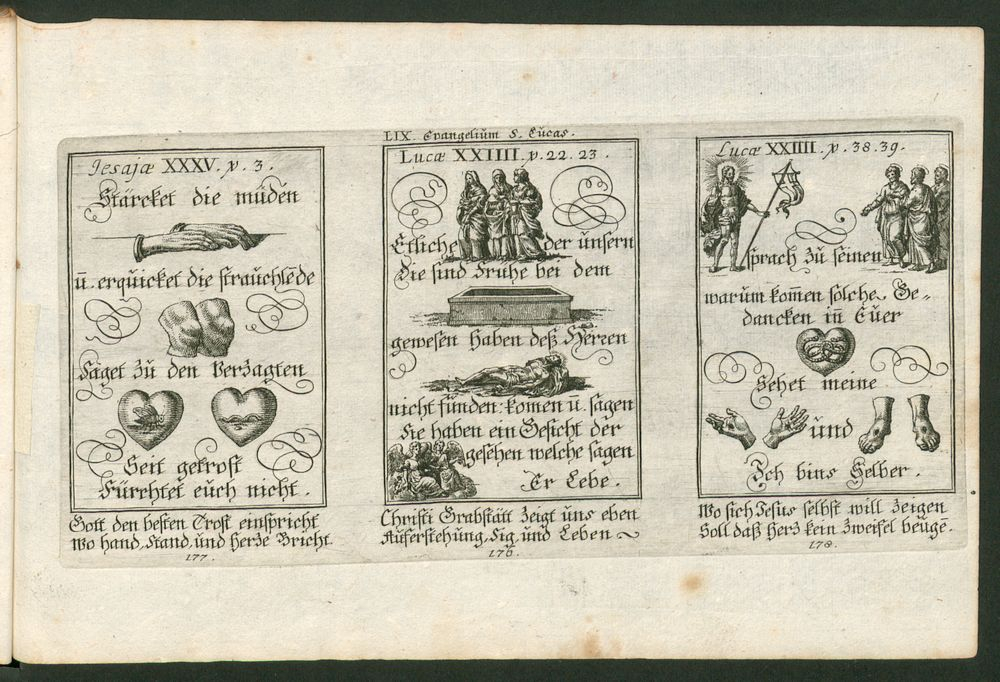 LIX. Evangelium S. Lucas.
Jesajæ XXXV. v. 3.
Stärcket die müden
uñ. erquicket die strauchlẽde
Saget zu den Verzagten
Seit getrost
Fürchtet euch nicht.
Gott den besten Trost einspricht
Wo hand, Stand, und Herze Bricht
177.
Lucæ XXIIII. v. 22. 23.
Etliche der unsern
Die sind Frühe bei dem
gewesen haben deß Herren
nicht funden: komen u. sagen
Sie haben ein Gesicht der
gesehen welche sagen
Er Lebe.
Christi Grabstätt zeigt uns eben
Aufferstehung, Sig, und Leben
176.
Lucæ XXIIII. v. 38. 39.
sprach zu seinen
warum kom̃en solche Ge-
dancken in Euer
Sehet meine
und
Ich bins Selber.
Wo sich Jesus selbst will zeigen
Soll daß Herz kein Zweifel beuge.
178.